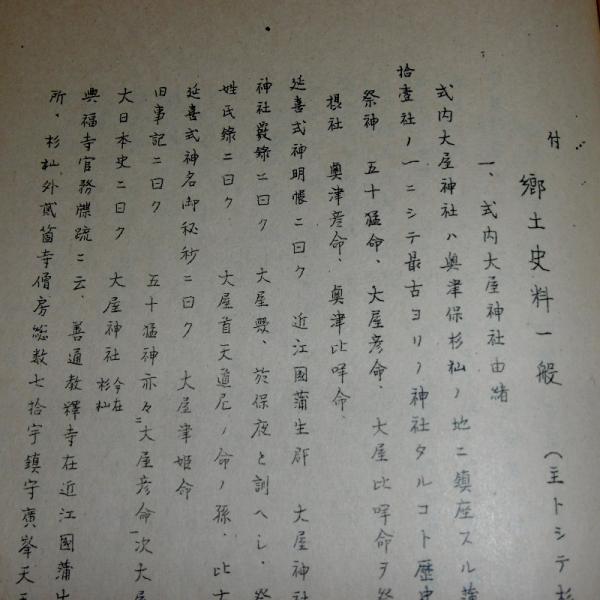 付
郷土史料一般 （主トシテ杉
一、式内大屋神社由緒
式内大屋神社ハ奥津保杉杣ノ地ニ鎮座スル蒲
拾壹社ノ一ニシテ最古ヨリノ神社タルコト歴史
祭神 五十猛命、大屋彦命、大屋比咩命ヲ祭
摂社 奥津彦命、奥津比咩命、
延喜式神明帳ニ曰ク 近江國蒲生郡 大屋神社
神社覈録ニ曰ク 大屋ハ、於保夜と訓へし、祭
姓氏録ニ曰ク 大屋首天道尼ノ命ノ孫、比古
延喜式神名御秘抄ニ曰ク 大屋津姫命
旧事記ニ曰ク 五十猛神亦々ニ大屋彦命一次大屋
大日本史ニ曰ク 大屋神社 今在杉杣
興福寺官務牒疏ニ云、善通教釋寺在近江國蒲生
所、杉杣外貮箇寺僧房総数七拾宇鎮守廣峯天王